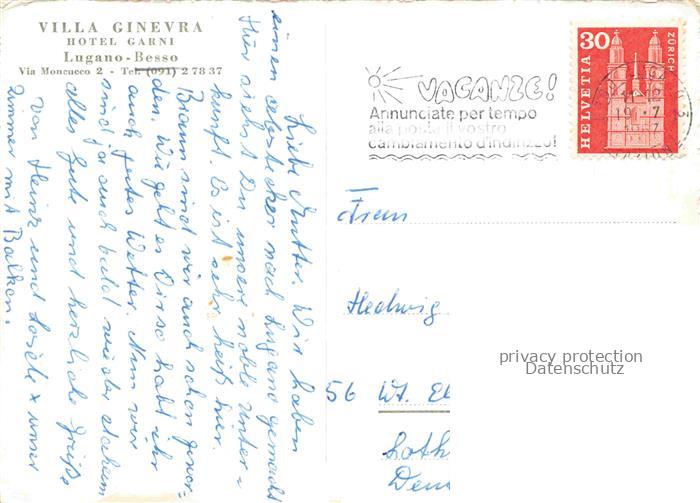 VILLA GINEVRA
HOTEL GARNI
Lugano-Besso
Via Moncucco 2 - Tel. (091) 2 78 37
Liebe Mutter. Wir haben
einen abstecher nach Lugano gemacht
Hier siehst Du unsere noble Unter=
kunft. Es ist sehr heiß hier.
Braun sind wir auch schon gewor=
den. Wie geht es Dir so habt ihr
auch gutes Wetter. Nun wir
sind ja auch bald wieder daheim
alles Gute und herzliche Grüße
von Heinz und x unser
Zimmer mit Balkon.
VACANZE!
Annunciate per tempo
alla posta il vostro
cambiamento d'indirizzo!
30
HELVETIA
ZÜRICH
19.-7
Frau
Hedwig
56 Wt. El
Loth
privacy protection
Datenschutz